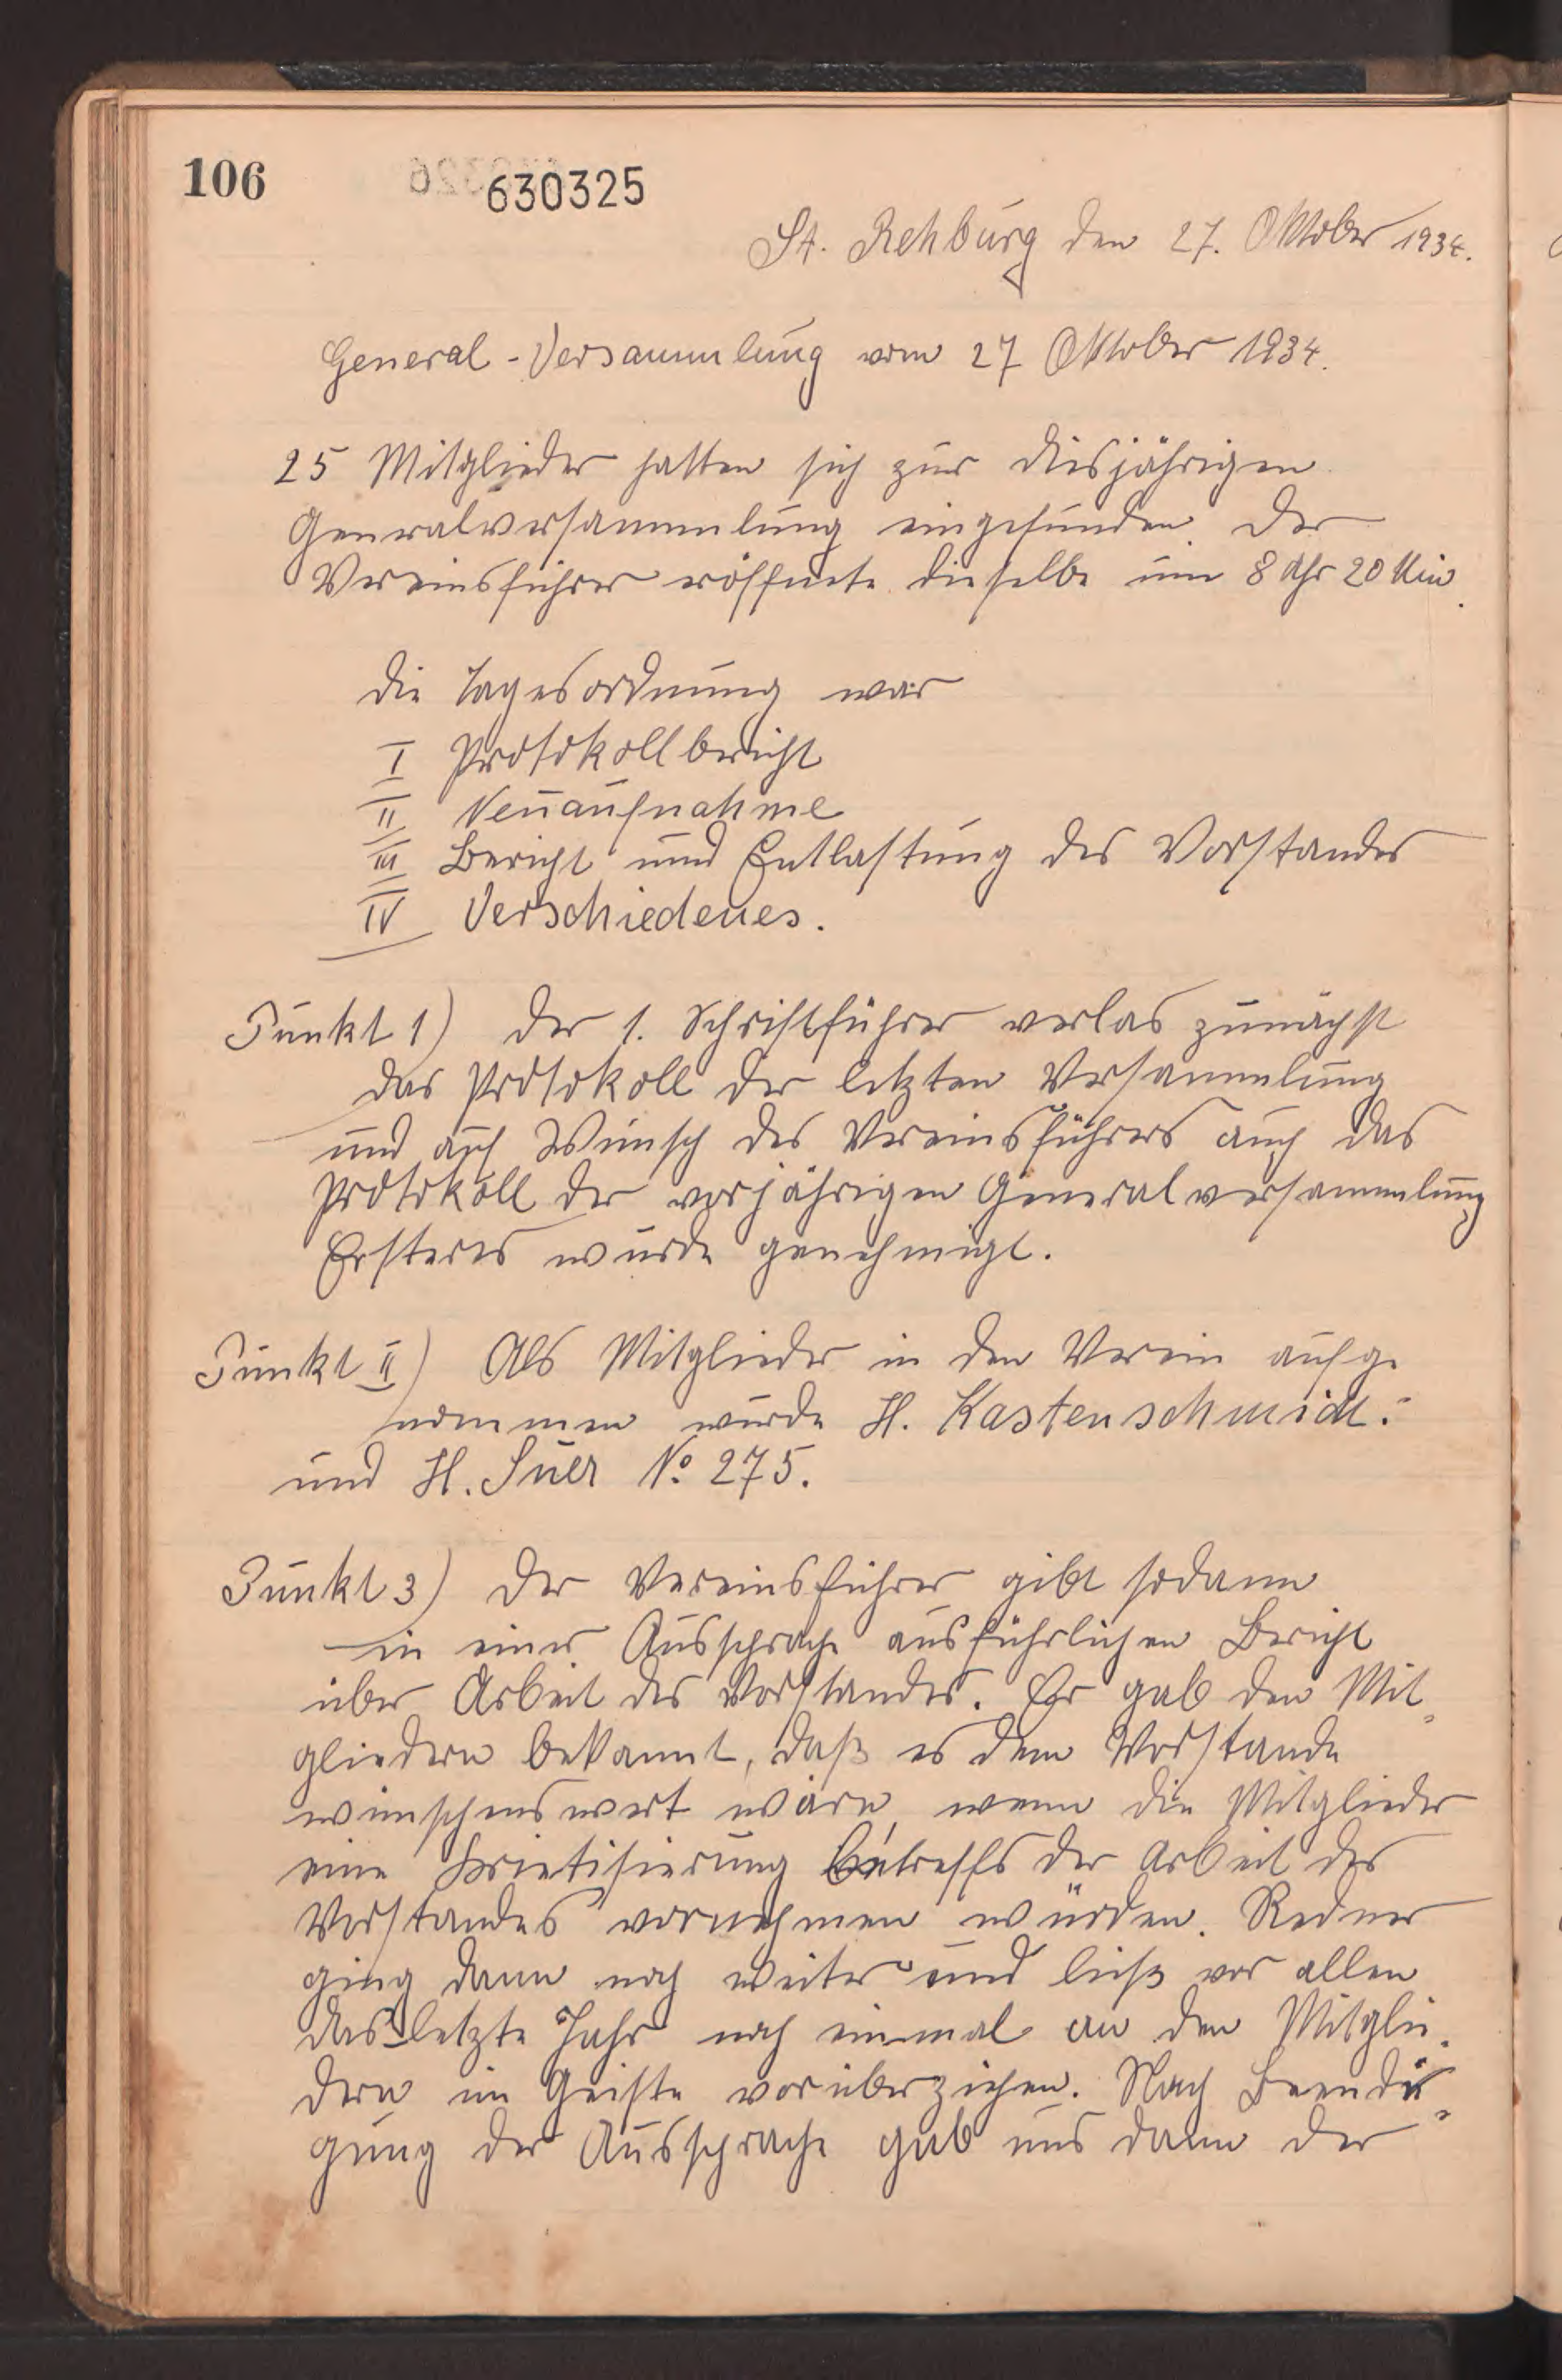 106
630325
St. Rehburg den 27. Oktober 1934.
General-Versammlung vom 27 Oktober 1934.
25 Mitglieder hatten sich zur diesjährigen
Generalversammlung eingefunden. Der
Vereinsführer eröffnete dieselbe um 8 Uhr 20 Min.
Die Tagesordnung war
I Protokollbericht
II Neuaufnahme
III Bericht und Entlastung des Vorstandes
IV Verschiedenes.
Punkt 1) Der 1. Schriftführer verlas zunächst
das Protokoll der letzten Versammlung
und auf Wunsch des Vereinsführers auch das
Protokoll der vorjährigen Generalversammlung
Ersteres wurde genehmigt.
Punkt II) Als Mitglieder in den Verein aufge
nommen wurde H. Kastenschmidt.
und H. Suer No 275.
Punkt 3) Der Vereinsführer gibt sodann
in einer Aussprache ausführlichen Bericht
über Arbeit des Vorstandes. Er gab den Mit-
gliedern bekannt, daß es dem Vorstande
wünschenswert wäre, wenn die Mitglieder
eine Krietisierung betreffs der Arbeit des
Vorstandes vornehmen würden. Redner
ging dann noch weiter und ließ vor allen
das letzte Jahr noch einmal an den Mitglie-
dern im Geiste vorüberziehen. Nach Beendi-
gung der Aussprache gab uns dann der